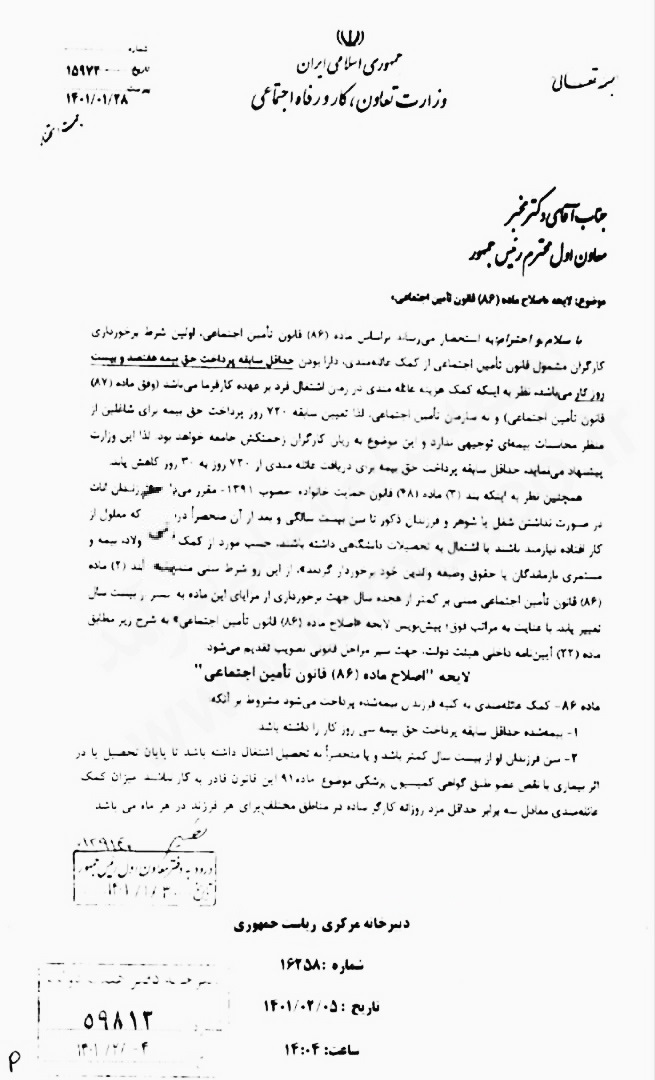 بسمه تعالی
جمهوری اسلامی ایران
وزارت تعاون، کار و رفاه اجتماعی
شماره
تاریخ ۱۵۹۷۳
۱۴۰۱/۰۱/۲۸
جناب آقای دکتر مخبر
معاون اول محترم رئیس جمهور
موضوع: لایحه «اصلاح ماده (۸۶) قانون تأمین اجتماعی»
با سلام و احترام؛ به استحضار می‌رساند براساس ماده (۸۶) قانون تأمین اجتماعی، اولین شرط برخورداری
کارگران مشمول قانون تأمین اجتماعی از کمک عائله‌مندی، دارا بودن حداقل سابقه پرداخت حق بیمه هفتصد و بیست
روز کار می‌باشد. نظر به اینکه کمک هزینه عائله مندی در زمان اشتغال فرد بر عهده کارفرما می‌باشد (وفق ماده (۸۷)
قانون تأمین اجتماعی) و نه سازمان تأمین اجتماعی، لذا تعیین سابقه ۷۲۰ روز پرداخت حق بیمه برای شاغلین از
منظر محاسبات بیمه‌ای توجیهی ندارد و این موضوع به زیان کارگران زحمتکش جامعه خواهد بود. لذا این وزارت
پیشنهاد می‌نماید، حداقل سابقه پرداخت حق بیمه برای دریافت عائله مندی از ۷۲۰ روز به ۳۰ روز کاهش یابد.
همچنین نظر به اینکه بند (۳) ماده (۴۸) قانون حمایت خانواده مصوب ۱۳۹۱- مقرر می‌دارد فرزندان اناث
در صورت نداشتن شغل یا شوهر و فرزندان ذکور تا سن بیست سالگی و بعد از آن منحصراً در که معلول از
کار افتاده نیازمند باشند یا اشتغال به تحصیلات دانشگاهی داشته باشند، حسب مورد از کمک اولاد، بیمه و
مستمری بازماندگان یا حقوق وظیفه والدین خود برخوردار گردند»، از این رو شرط سنی بند (۲) ماده
(۸۶) قانون تأمین اجتماعی مبنی بر کمتر از هجده سال جهت برخورداری از مزایای این ماده به کمتر از بیست سال
تغییر یابد. با عنایت به مراتب فوق؛ پیش‌نویس لایحه «اصلاح ماده (۸۶) قانون تأمین اجتماعی» به شرح زیر مطابق
ماده (۲۲) آیین‌نامه داخلی هیئت دولت، جهت سیر مراحل قانونی تصویب تقدیم می‌شود.
لایحه "اصلاح ماده (۸۶) قانون تأمین اجتماعی"
ماده ۸۶- کمک عائله‌مندی به کلیه فرزندان بیمه‌شده پرداخت می‌شود مشروط بر آنکه:
۱- بیمه‌شده حداقل سابقه پرداخت حق بیمه سی روز کار را داشته باشد.
۲- سن فرزندان او از بیست سال کمتر باشد و یا منحصراً به تحصیل اشتغال داشته باشد تا پایان تحصیل یا در
اثر بیماری یا نقص عضو طبق گواهی کمیسیون پزشکی موضوع ماده ۹۱ این قانون قادر به کار نباشند. میزان کمک
عائله‌مندی معادل سه برابر حداقل مزد روزانه کارگر ساده در مناطق مختلف برای هر فرزند در هر ماه می باشد.
ورود به دفتر معاون اول رئیس جمهور
تاریخ ۱۴۰۱/۱/۳۰
دبیرخانه مرکزی ریاست جمهوری
شماره: ۱۶۲۵۸
تاریخ: ۱۴۰۱/۰۲/۰۵
ساعت: ۱۴:۰۴
۵۹۸۱۲